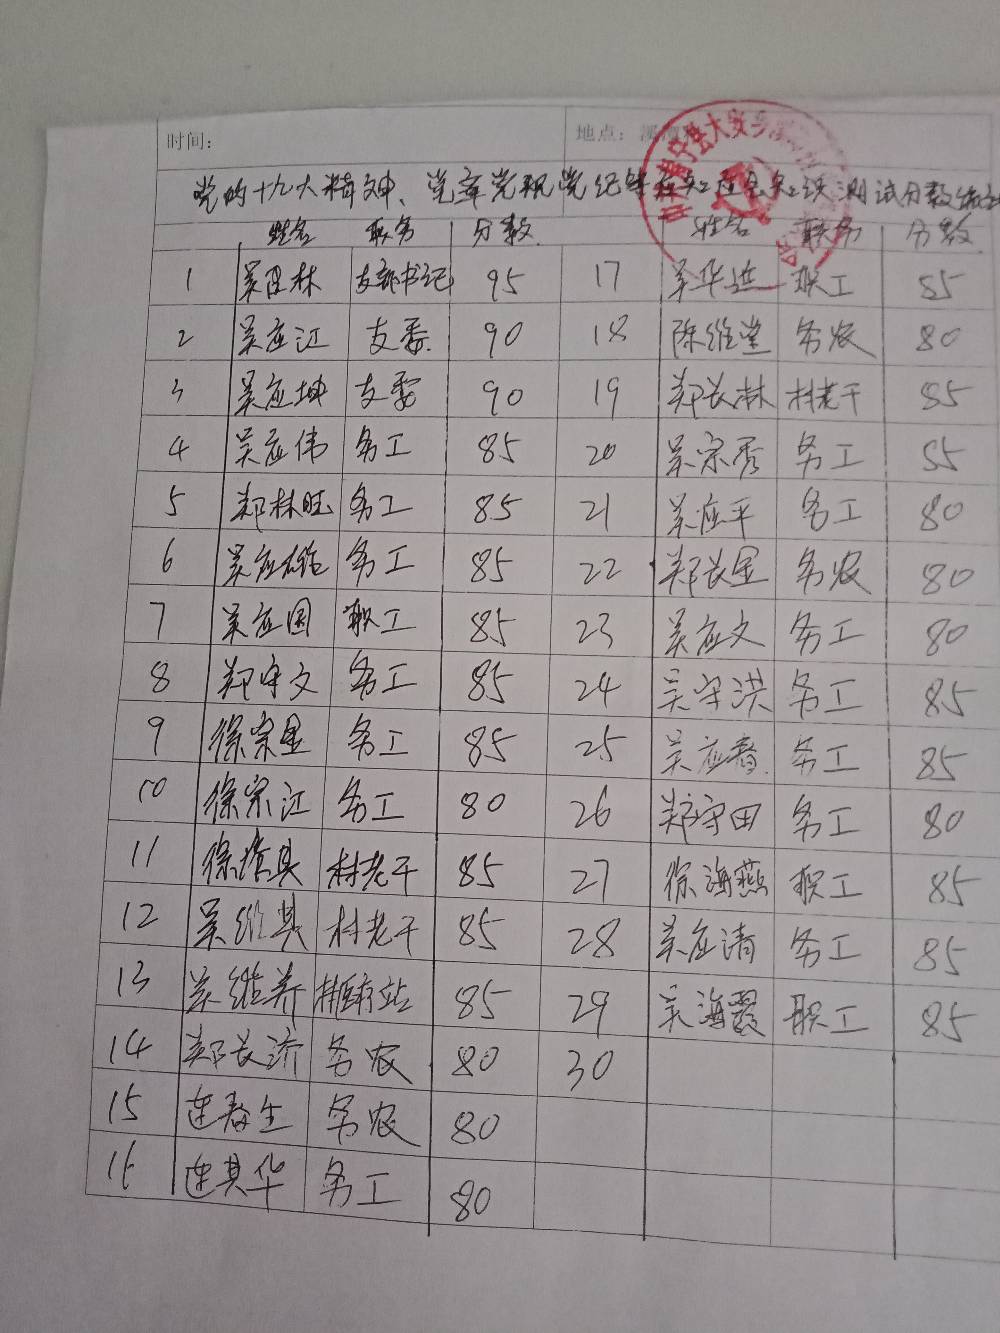 时间： 地点：
党的十九大精神、党章党规党纪 应知应会知识测试分数
姓名 职务 分数 姓名 职务 分数
1 吴 林 支部书记 95 17 吴华 职工 85
2 吴应江 支委 90 18 陈维堂 务农 80
3 吴应坤 支委 90 19 郑长林 村老干 85
4 吴应伟 务工 85 20 吴宗秀 务工 85
5 郑林旺 务工 85 21 吴应平 务工 80
6 吴应雄 务工 85 22 郑长金 务农 80
7 吴应国 职工 85 23 吴应文 务工 80
8 郑守文 务工 85 24 吴守洪 务工 85
9 徐宗 务工 85 25 吴应 务工 85
10 徐宗江 务工 80 26 郑守田 务工 80
11 徐 村老干 85 27 徐海燕 职工 85
12 吴维其 村老干 85 28 吴应清 务工 85
13 吴维 站 85 29 吴海霞 职工 85
14 郑长济 务农 80 30
15 连春生 务农 80
16 连其华 务工 80